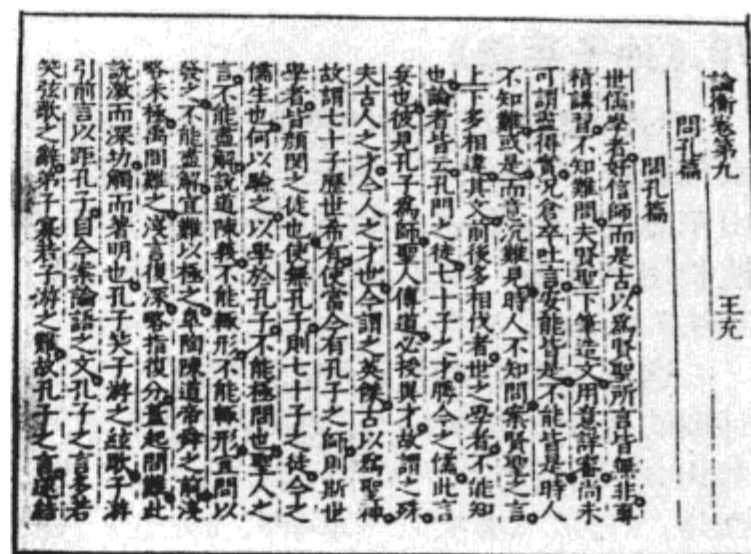 論衡卷第九 王充
問孔篇
問孔篇
世儒學者好信師而是古以爲賢聖所言皆無非專
精講習不知難問夫賢聖下筆造文用意詳審尚未
可謂盡得實況倉卒吐言安能皆是不能皆是時人
不知難或是而意沉難見時人不知問案賢聖之言
上下多相違其文前後多相伐者世之學者不能知
也論者皆云孔門之徒七十子之才勝今之儒此言
妄也彼見孔子爲師聖人傳道必授異才故謂之殊
夫古人之才今人之才也今謂之英傑古以爲聖神
故謂七十子歷世希有使當今有孔子之師則斯世
學者皆顏閔之徒也使無孔子則七十子之徒今之
儒生也何以驗之以學於孔子不能極問也聖人之
言不能盡解說道陳義不能輒形不能輒形宜問以
發之不能盡解宜難以極之皋陶陳道帝舜之前淺
略未極禹問難之淺言復深略指復分蓋起問難此
說激而深切觸而著明也孔子笑子游之絃歌子游
引前言以距孔子自今案論語之文孔子之言多若
笑弦歌之辭弟子寡若子游之難故孔子之言遂結